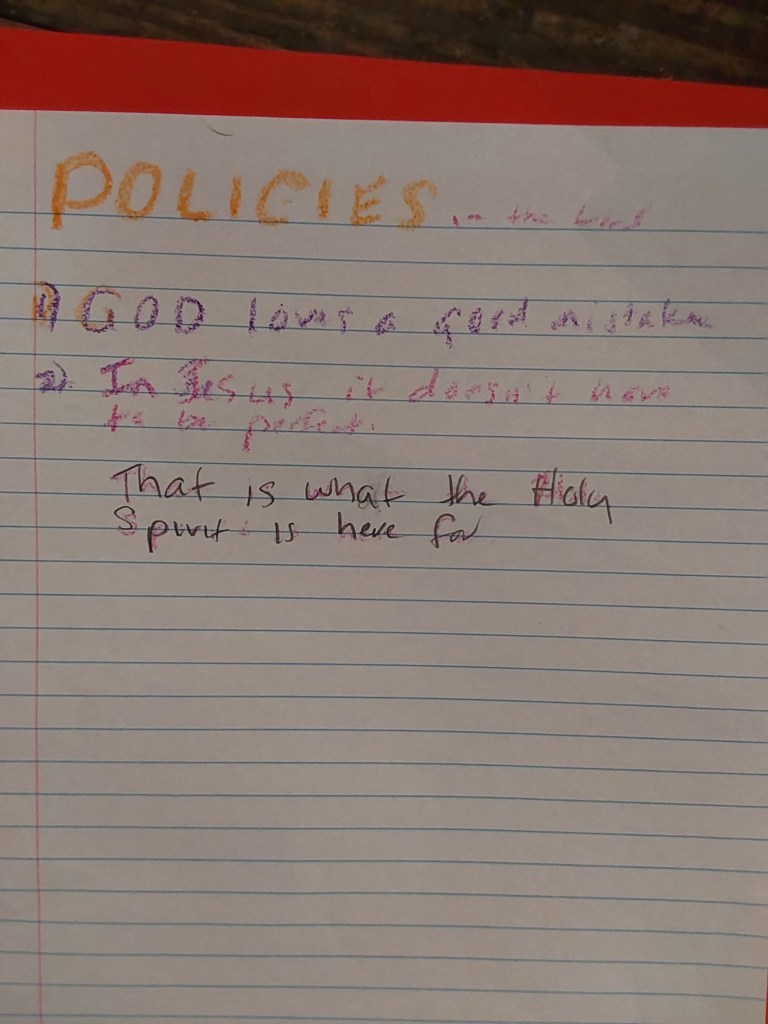 POLICIES in the
1) GOD loves a good mistake
2) In Jesus it doesn't have
to be perfect.
That is what the Holy
Spirit is here for